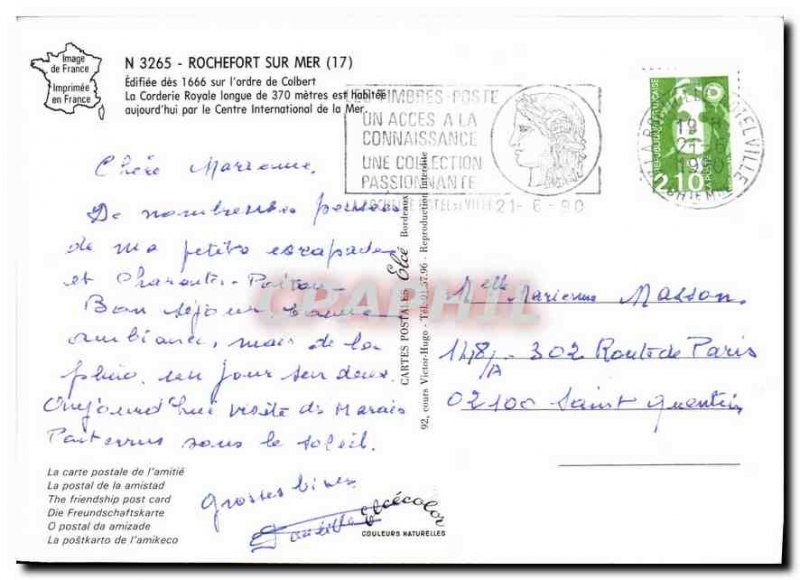 Image
de France
Imprimée
en France
N 3265 - ROCHEFORT SUR MER (17)
Édifiée dès 1666 sur l'ordre de Colbert
La Corderie Royale longue de 370 mètres est habitée
aujourd'hui par le Centre International de la Mer.
TIMBRES-POSTE
UN ACCES A LA
CONNAISSANCE
UNE COLLECTION
PASSIONNANTE
21-6-90
REPUBLIQUE FRANÇAISE
2,10
LA POSTE
19
21-6
Chère Marienne,
De nombreuses pensées
de ma petite escapade
et Charente-Poitou-
Bon séjour bonne
ambiance, mais de la
pluie, un jour sur deux.
Aujourd'hui visite du Marais
Poitevin sous le soleil.
Grosses bises
CRAPHIL
CARTES POSTALES Elcé Bordeaux
92, cours Victor-Hugo - Tél. 91.57.96 - Reproduction interdite
Melle Marienne Masson
148/A - 302 Route de Paris
02100 Saint Quentin
La carte postale de l'amitié
La postal de la amistad
The friendship post card
Die Freundschaftskarte
O postal da amizade
La poŝtkarto de l'amikeco
elcécolor
COULEURS NATURELLES